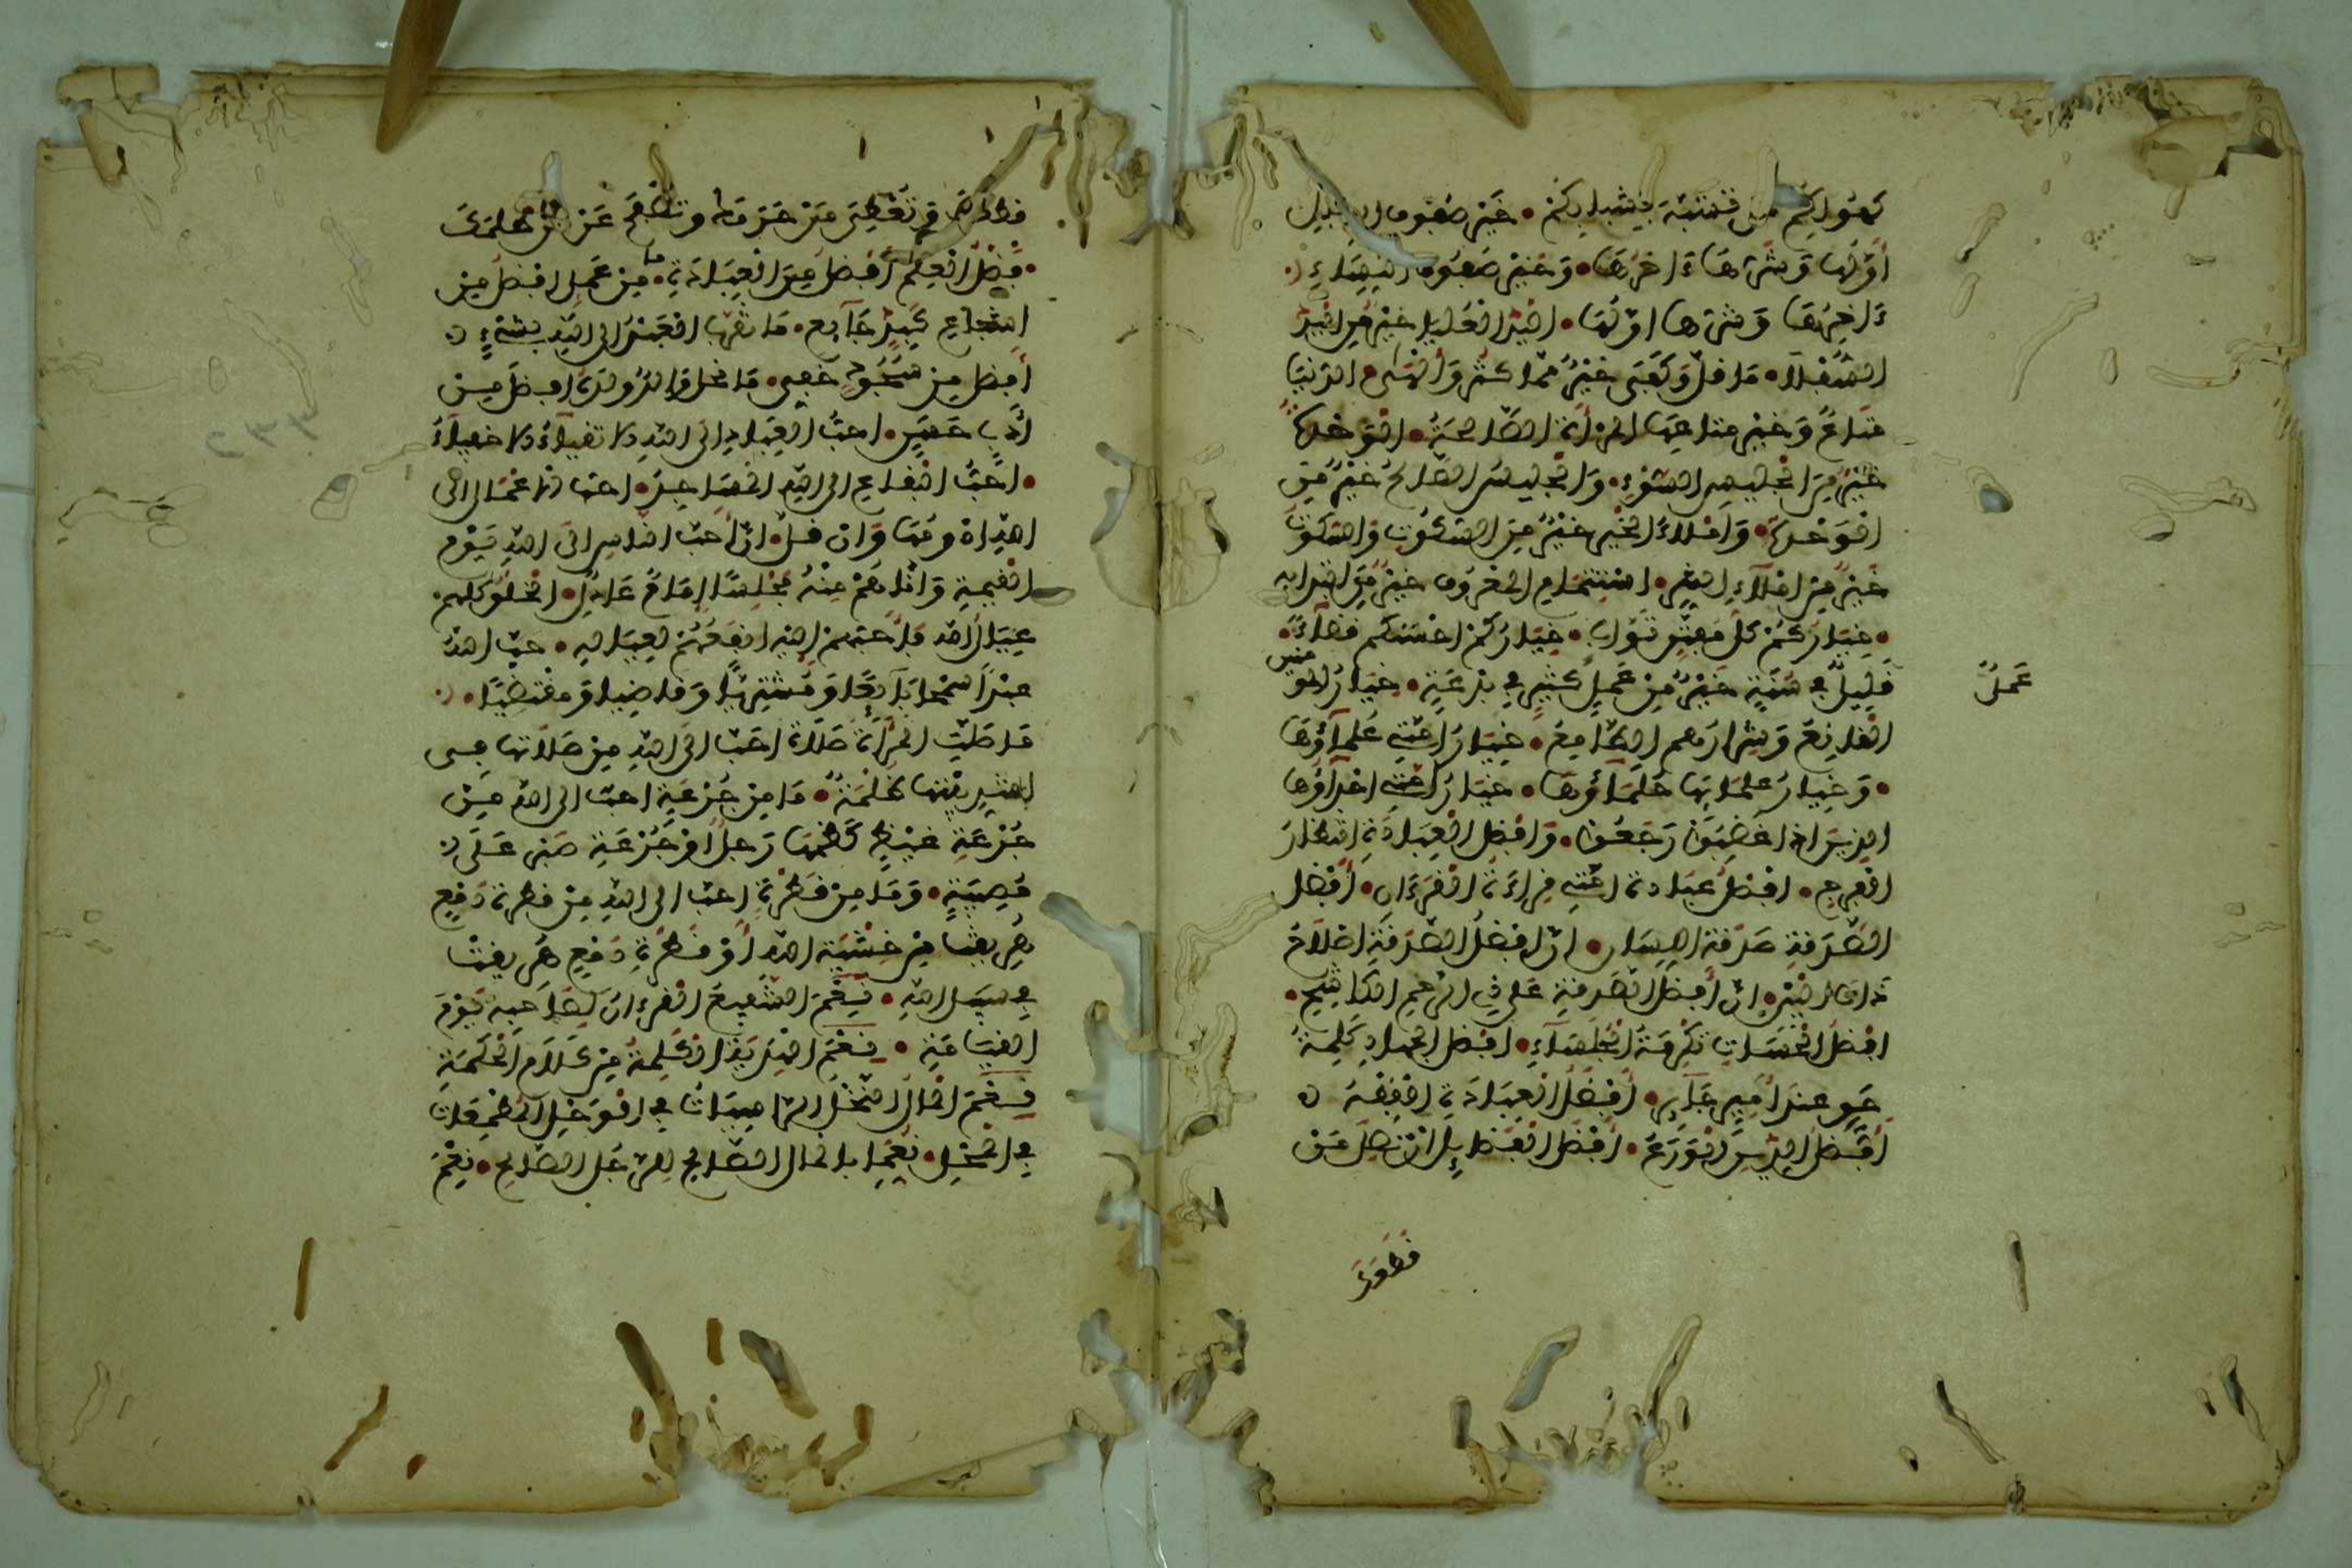 كهولكم من تشبه بشبابكم • خير صفوف الرجال
أولها وشرها ءاخرها • وخير صفوف النساء
ءاخرها وشرها اولها • اليد العليا خير من اليد
السفلا • ما قل وكفى خير مما كثر وألهى • الدنيا
متاع وخير متاعها المرأة الصالحة • الوحدة
خير من الجليس السوء • والجليس الصالح خير من
الوحدة • واملاء الخير خير من السكوت والسكوت
خير من املاء الشر • استتمام المعروف خير من ابتدايه
• خياركم كل مفتن تواب • خياركم احسنكم قضاء •
عمل
قليل في سنة خير من عمل كثير في بدعة • خيار المومنين
القانع وشرارهم الطامع • خيار أمتي علماؤها
• وخيار علمايها حلماؤها • خيار أمتي احداؤها
الذين اذا غضبوا رجعوا • وافضل العبادة انتظار
الفرج • افضل عبادة امتي قراءة القرءان • أفضل
الصدقة صدقة اللسان • ان افضل الصدقة اصلاح
ذات البين • ان أفضل الصدقة على ذي الرحم الكاشح •
افضل الحسنات تكرمة الجلساء • افضل الجهاد كلمة
حق عند أمير جاير • أفضل العبادة الفقه
أفضل الدين الورع • افضل الفضايل ان تصل من
قطعك
قطعك وتعطي من حرمك وتصفح عن من ظلمك
• فضل العلم أفضل من العبادة • ما من عمل افضل من
اشباع كبد جايع • ما تقرب العبد الى الله بشيء
أفضل من سجود خفي • ما نحل والد ولده افضل من
أدب حسن • احب العباد الى الله الاتقياء الاخفياء
• احب البقاع الى الله المساجد • احب الاعمال الى
الله ادومها وان قل • ان أحب الناس الى الله يوم
القيمة وأدناهم منه مجلسا إمام عادل • الخلق كلهم
عيال الله فأحبهم الى الله انفعهم لعياله • حب الله
عبدا سمحا بايعا ومشتريا وقاضيا ومقتضيا •
ما صلت المرأة صلاة احب الى الله من صلاتها في
اشد بيتها ظلمة • ما من جرعة احب الى الله من
جرعة غيظ كظمها رجل أو جرعة صبر على
مصيبة • وما من قطرة احب الى الله من قطرة دمع
هريقت من خشية الله أو قطرة دمع هريقت
في سبيل الله • نعم الشفيع القرءان لصاحبه يوم
القيامة • نعم الهدية الكلمة من كلام الحكمة
نعم المال النخل الراسيات في الوحل المطعمات
في المحل • نعما بالمال الصالح للرجل الصالح • نعم